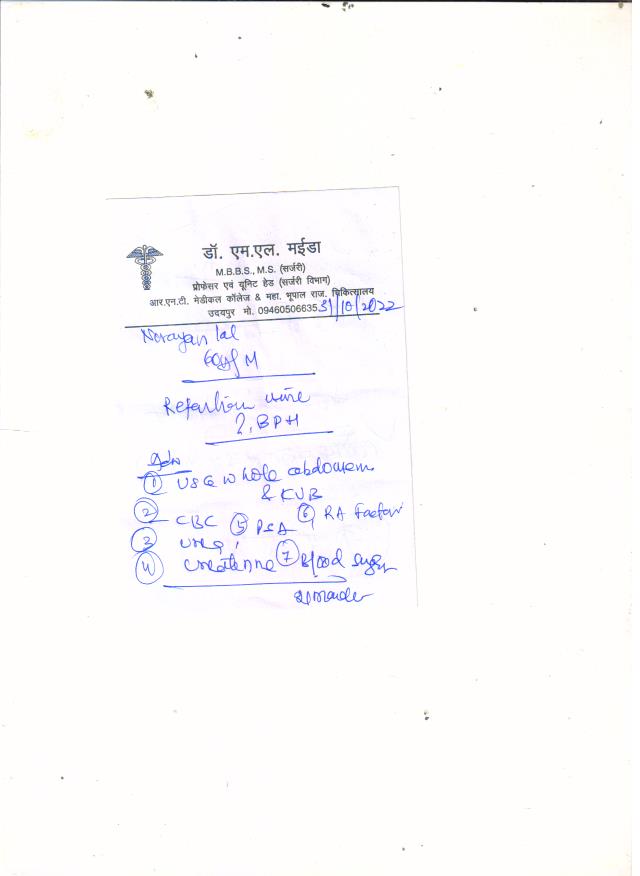 डॉ. एम.एल. मईडा
M.B.B.S., M.S. (सर्जरी)
प्रोफेसर एवं यूनिट हेड (सर्जरी विभाग)
आर.एन.टी. मेडीकल कॉलेज & महा. भूपाल राज. चिकित्सालय
उदयपुर मो. 09460506635 31/10/2022
Narayan lal
60y/M
Retention urine
?. BPH
Adv
① USG whole abdomen
& KUB
② CBC ⑤ PSA ⑥ RA Factor
③ urea
④ creatinine ⑦ Blood sugar